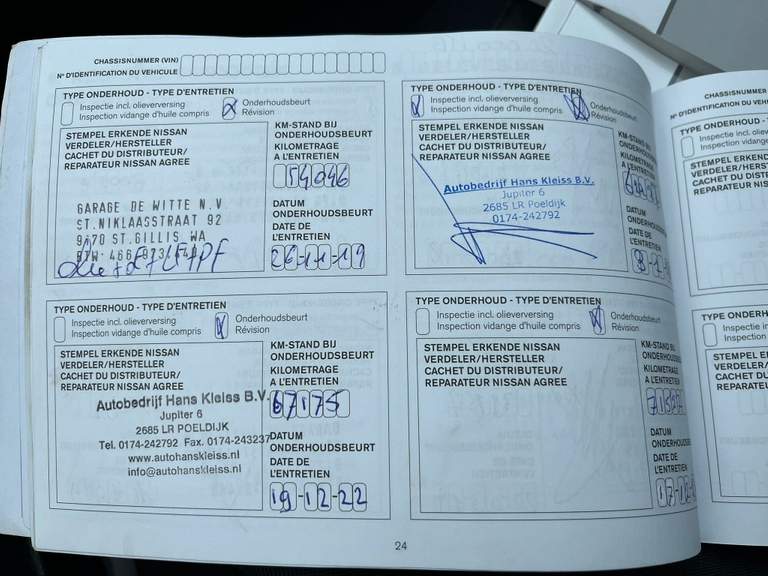 CHASSISNUMMER (VIN)
Nº D'IDENTIFICATION DU VEHICULE
TYPE ONDERHOUD - TYPE D'ENTRETIEN
Inspectie incl. olieverversing
Inspection vidange d'huile compris
Onderhoudsbeurt
Révision
STEMPEL ERKENDE NISSAN
VERDELER/HERSTELLER
CACHET DU DISTRIBUTEUR/
REPARATEUR NISSAN AGREE
KM-STAND BIJ
ONDERHOUDSBEURT
KILOMETRAGE
A L'ENTRETIEN
54046
GARAGE DE WITTE N.V.
ST.NIKLAASSTRAAT 92
9170 ST.GILLIS WA
DATUM
ONDERHOUDSBEURT
DATE DE
L'ENTRETIEN
26-11-19
TYPE ONDERHOUD - TYPE D'ENTRETIEN
Inspectie incl. olieverversing
Inspection vidange d'huile compris
Onderhoudsbeurt
Révision
STEMPEL ERKENDE NISSAN
VERDELER/HERSTELLER
CACHET DU DISTRIBUTEUR/
REPARATEUR NISSAN AGREE
KM-STAND
ONDERHOUDS
KILOMETRAGE
A L'ENTRETIEN
Autobedrijf Hans Kleiss B.V.
Jupiter 6
2685 LR Poeldijk
0174-242792
DATUM
ONDERHOUDS
DATE DE
L'ENTRETIEN
TYPE ONDERHOUD - TYPE D'ENTRETIEN
Inspectie incl. olieverversing
Inspection vidange d'huile compris
Onderhoudsbeurt
Révision
STEMPEL ERKENDE NISSAN
VERDELER/HERSTELLER
CACHET DU DISTRIBUTEUR/
REPARATEUR NISSAN AGREE
KM-STAND BIJ
ONDERHOUDSBEURT
KILOMETRAGE
A L'ENTRETIEN
67175
Autobedrijf Hans Kleiss B.V.
Jupiter 6
2685 LR POELDIJK
Tel. 0174-242792 Fax. 0174-243237
www.autohanskleiss.nl
info@autohanskleiss.nl
DATUM
ONDERHOUDSBEURT
DATE DE
L'ENTRETIEN
19-12-22
TYPE ONDERHOUD - TYPE D'ENTRETIEN
Inspectie incl. olieverversing
Inspection vidange d'huile compris
Onderhoudsbeurt
Révision
STEMPEL ERKENDE NISSAN
VERDELER/HERSTELLER
CACHET DU DISTRIBUTEUR/
REPARATEUR NISSAN AGREE
KM-STAND
ONDERHOUDS
KILOMETRAGE
A L'ENTRETIEN
DATUM
ONDERHOUDS
DATE DE
L'ENTRETIEN
24
CHASSISNUMMER
Nº D'IDENTIFICATION DU VEH
TYPE ONDERHOUD
Inspectie incl. oliev
Inspection vidange
STEMPEL ERKENDE
VERDELER/HERST
CACHET DU DISTRI
REPARATEUR NISS
TYPE ONDERH
Inspectie in
Inspection
STEMPEL E
VERDELER/
CACHET DU
REPARATEU